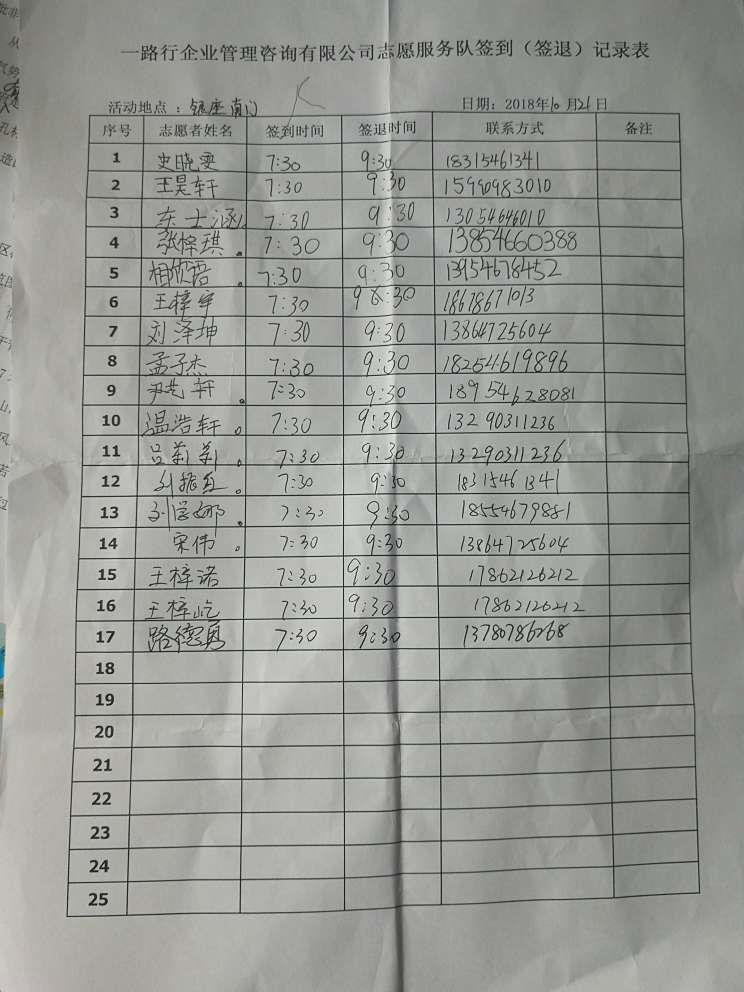 一路行企业管理咨询有限公司志愿服务队签到（签退）记录表
活动地点：银座南门 日期：2018年10月21日
序号 志愿者姓名 签到时间 签退时间 联系方式 备注
1 史晓雯 7:30 9:30 18315461341
2 王昊轩 7:30 9:30 15990983010
3 东士涵 7:30 9:30 13054646010
4 张梓琪 7:30 9:30 13854660388
5 相欣语 7:30 9:30 13954678452
6 王梓宇 7:30 9:30 18678671013
7 刘泽坤 7:30 9:30 13864725604
8 孟子杰 7:30 9:30 18254619896
9 尹艺轩 7:30 9:30 18954628081
10 温浩轩 7:30 9:30 13290311236
11 吕莉莉 7:30 9:30 13290311236
12 刘振 7:30 9:30 18315461341
13 刘学娜 7:30 9:30 18554679881
14 宋伟 7:30 9:30 13864725604
15 王梓诺 7:30 9:30 17862126212
16 王梓屹 7:30 9:30 17862126212
17 路德勇 7:30 9:30 13780786268
18
19
20
21
22
23
24
25